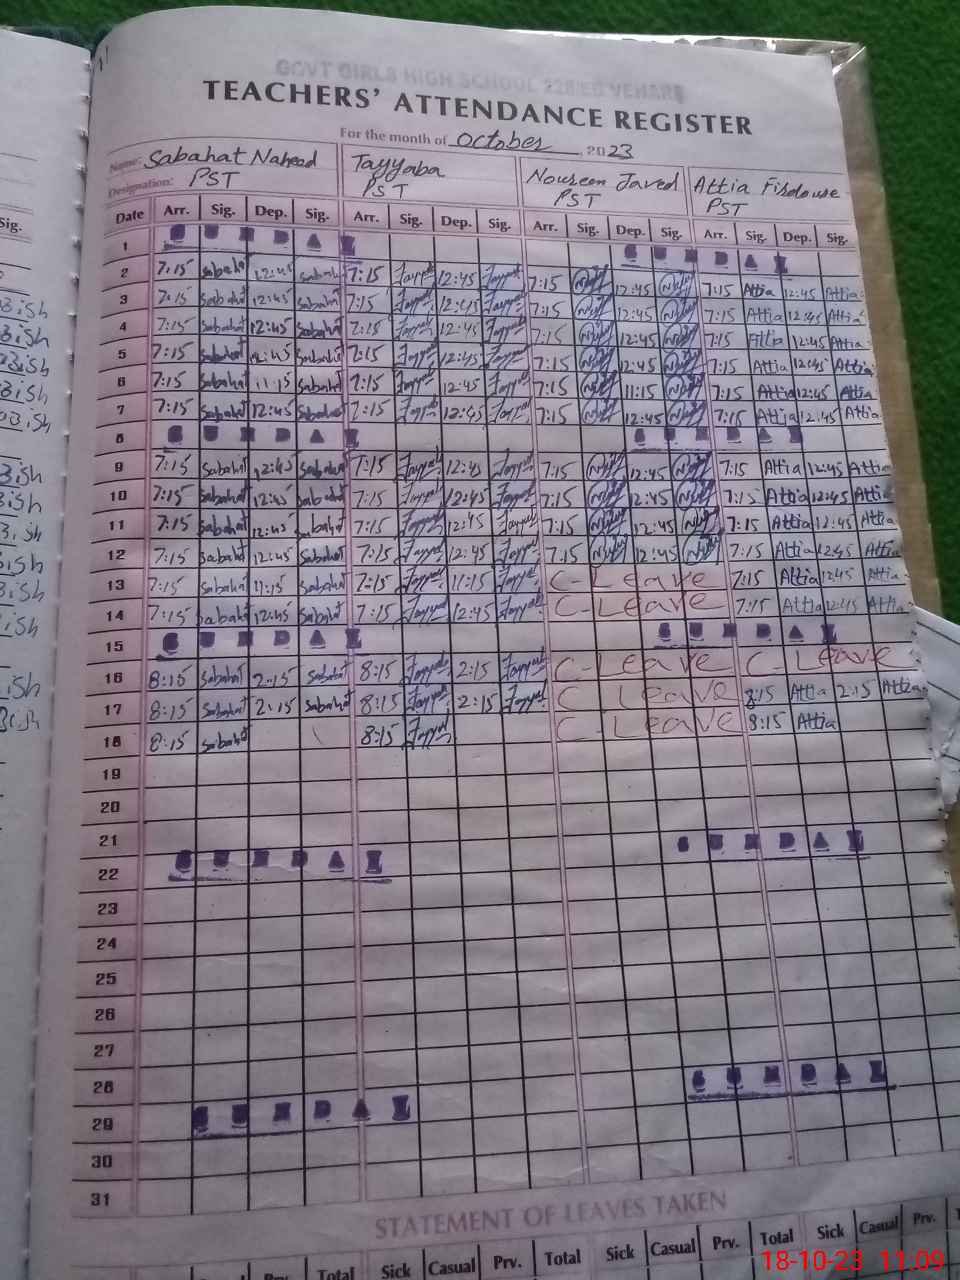 GOVT GIRLS HIGH SCHOOL 228/EB VEHARI
TEACHERS' ATTENDANCE REGISTER
For the month of October, 2023
Name: Sabahat Naheed Tayyaba Noureen Javed Attia Firdouse
Designation: PST PST PST PST
Date Arr. Sig. Dep. Sig. Arr. Sig. Dep. Sig. Arr. Sig. Dep. Sig. Arr. Sig. Dep. Sig.
1 SUNDAY SUNDAY
2 7:15 Sabahat 12:45 Sabahat 7:15 Tayyab 12:45 Tayyab 7:15 12:45 7:15 Attia 12:45 Attia
3 7:15 Sabahat 12:45 Sabahat 7:15 Tayyab 12:45 Tayyab 7:15 12:45 7:15 Attia 12:45 Attia
4 7:15 Sabahat 12:45 Sabahat 7:15 Tayyab 12:45 Tayyab 7:15 12:45 7:15 Attia 12:45 Attia
5 7:15 Sabahat 12:45 Sabahat 7:15 Tayyab 12:45 Tayyab 7:15 12:45 7:15 Attia 12:45 Attia
6 7:15 Sabahat 11:15 Sabahat 7:15 Tayyab 12:45 Tayyab 7:15 11:15 7:15 Attia 12:45 Attia
7 7:15 Sabahat 12:45 Sabahat 7:15 Tayyab 12:45 Tayyab 7:15 12:45 7:15 Attia 12:45 Attia
8 SUNDAY SUNDAY
9 7:15 Sabahat 12:45 Sabahat 7:15 Tayyab 12:45 Tayyab 7:15 12:45 7:15 Attia 12:45 Attia
10 7:15 Sabahat 12:45 Sabahat 7:15 Tayyab 12:45 Tayyab 7:15 12:45 7:15 Attia 12:45 Attia
11 7:15 Sabahat 12:45 Sabahat 7:15 Tayyab 12:45 Tayyab 7:15 12:45 7:15 Attia 12:45 Attia
12 7:15 Sabahat 12:45 Sabahat 7:15 Tayyab 12:45 Tayyab 7:15 12:45 7:15 Attia 12:45 Attia
13 7:15 Sabahat 11:15 Sabahat 7:15 Tayyab 11:15 Tayyab C-Leave 7:15 Attia 12:45 Attia
14 7:15 Sabahat 12:45 Sabahat 7:15 Tayyab 12:45 Tayyab C-Leave 7:15 Attia 12:45 Attia
15 SUNDAY SUNDAY
16 8:15 Sabahat 2:15 Sabahat 8:15 Tayyab 2:15 Tayyab C-Leave C-Leave
17 8:15 Sabahat 2:15 Sabahat 8:15 Tayyab 2:15 Tayyab C-Leave 8:15 Attia 2:15 Attia
18 8:15 Sabahat 8:15 Tayyab C-Leave 8:15 Attia
19
20
21
22 SUNDAY SUNDAY
23
24
25
26
27
28
29 SUNDAY SUNDAY
30
31
STATEMENT OF LEAVES TAKEN
Casual Prv. Total Sick Casual Prv. Total Sick Casual Prv. Total Sick Casual Prv.
18-10-23 11:09